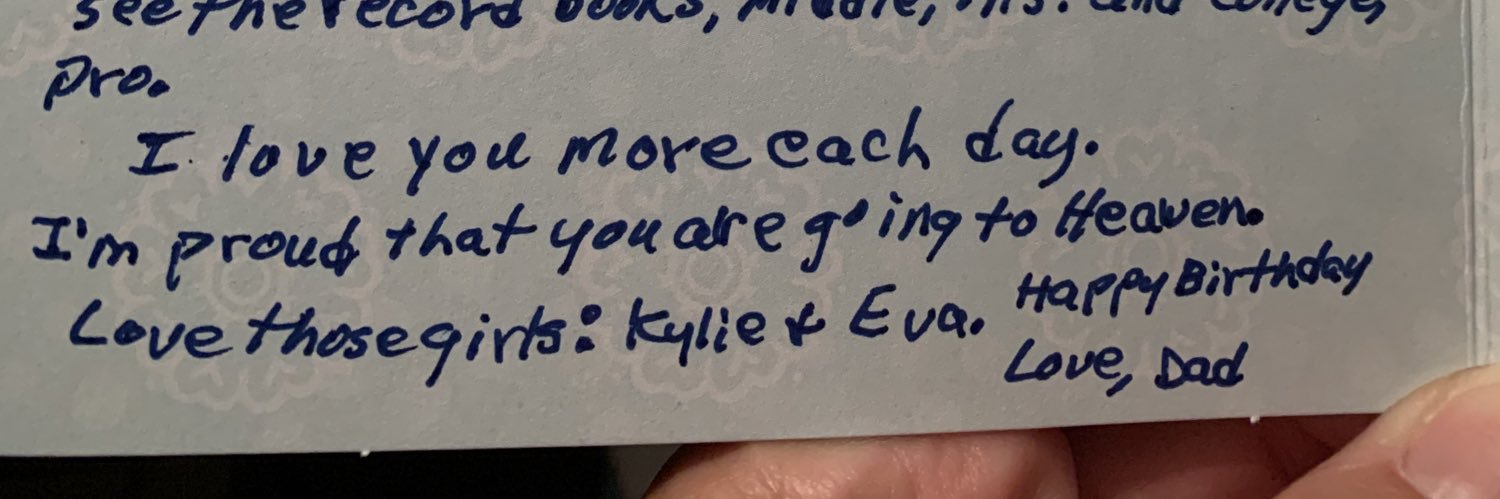 see the record books, Middle, H.S. and College,
pro.
I love you more each day.
I'm proud that you are going to Heaven.
Love those girls: Kylie & Eva. Happy Birthday
Love, Dad